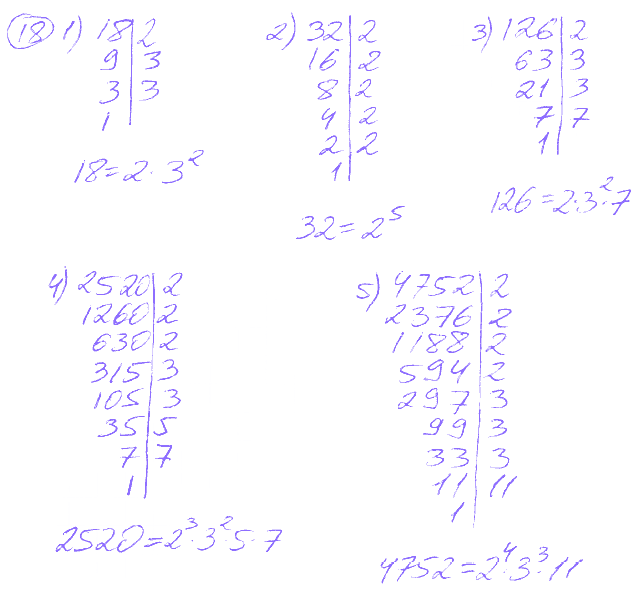 18 1) 18 | 2
9 | 3
3 | 3
1
18 = 2 · 3²
2) 32 | 2
16 | 2
8 | 2
4 | 2
2 | 2
1
32 = 2⁵
3) 126 | 2
63 | 3
21 | 3
7 | 7
1
126 = 2·3²·7
4) 2520 | 2
1260 | 2
630 | 2
315 | 3
105 | 3
35 | 5
7 | 7
1
2520 = 2³·3² 5·7
5) 4752 | 2
2376 | 2
1188 | 2
594 | 2
297 | 3
99 | 3
33 | 3
11 | 11
1
4752 = 2⁴·3³·11